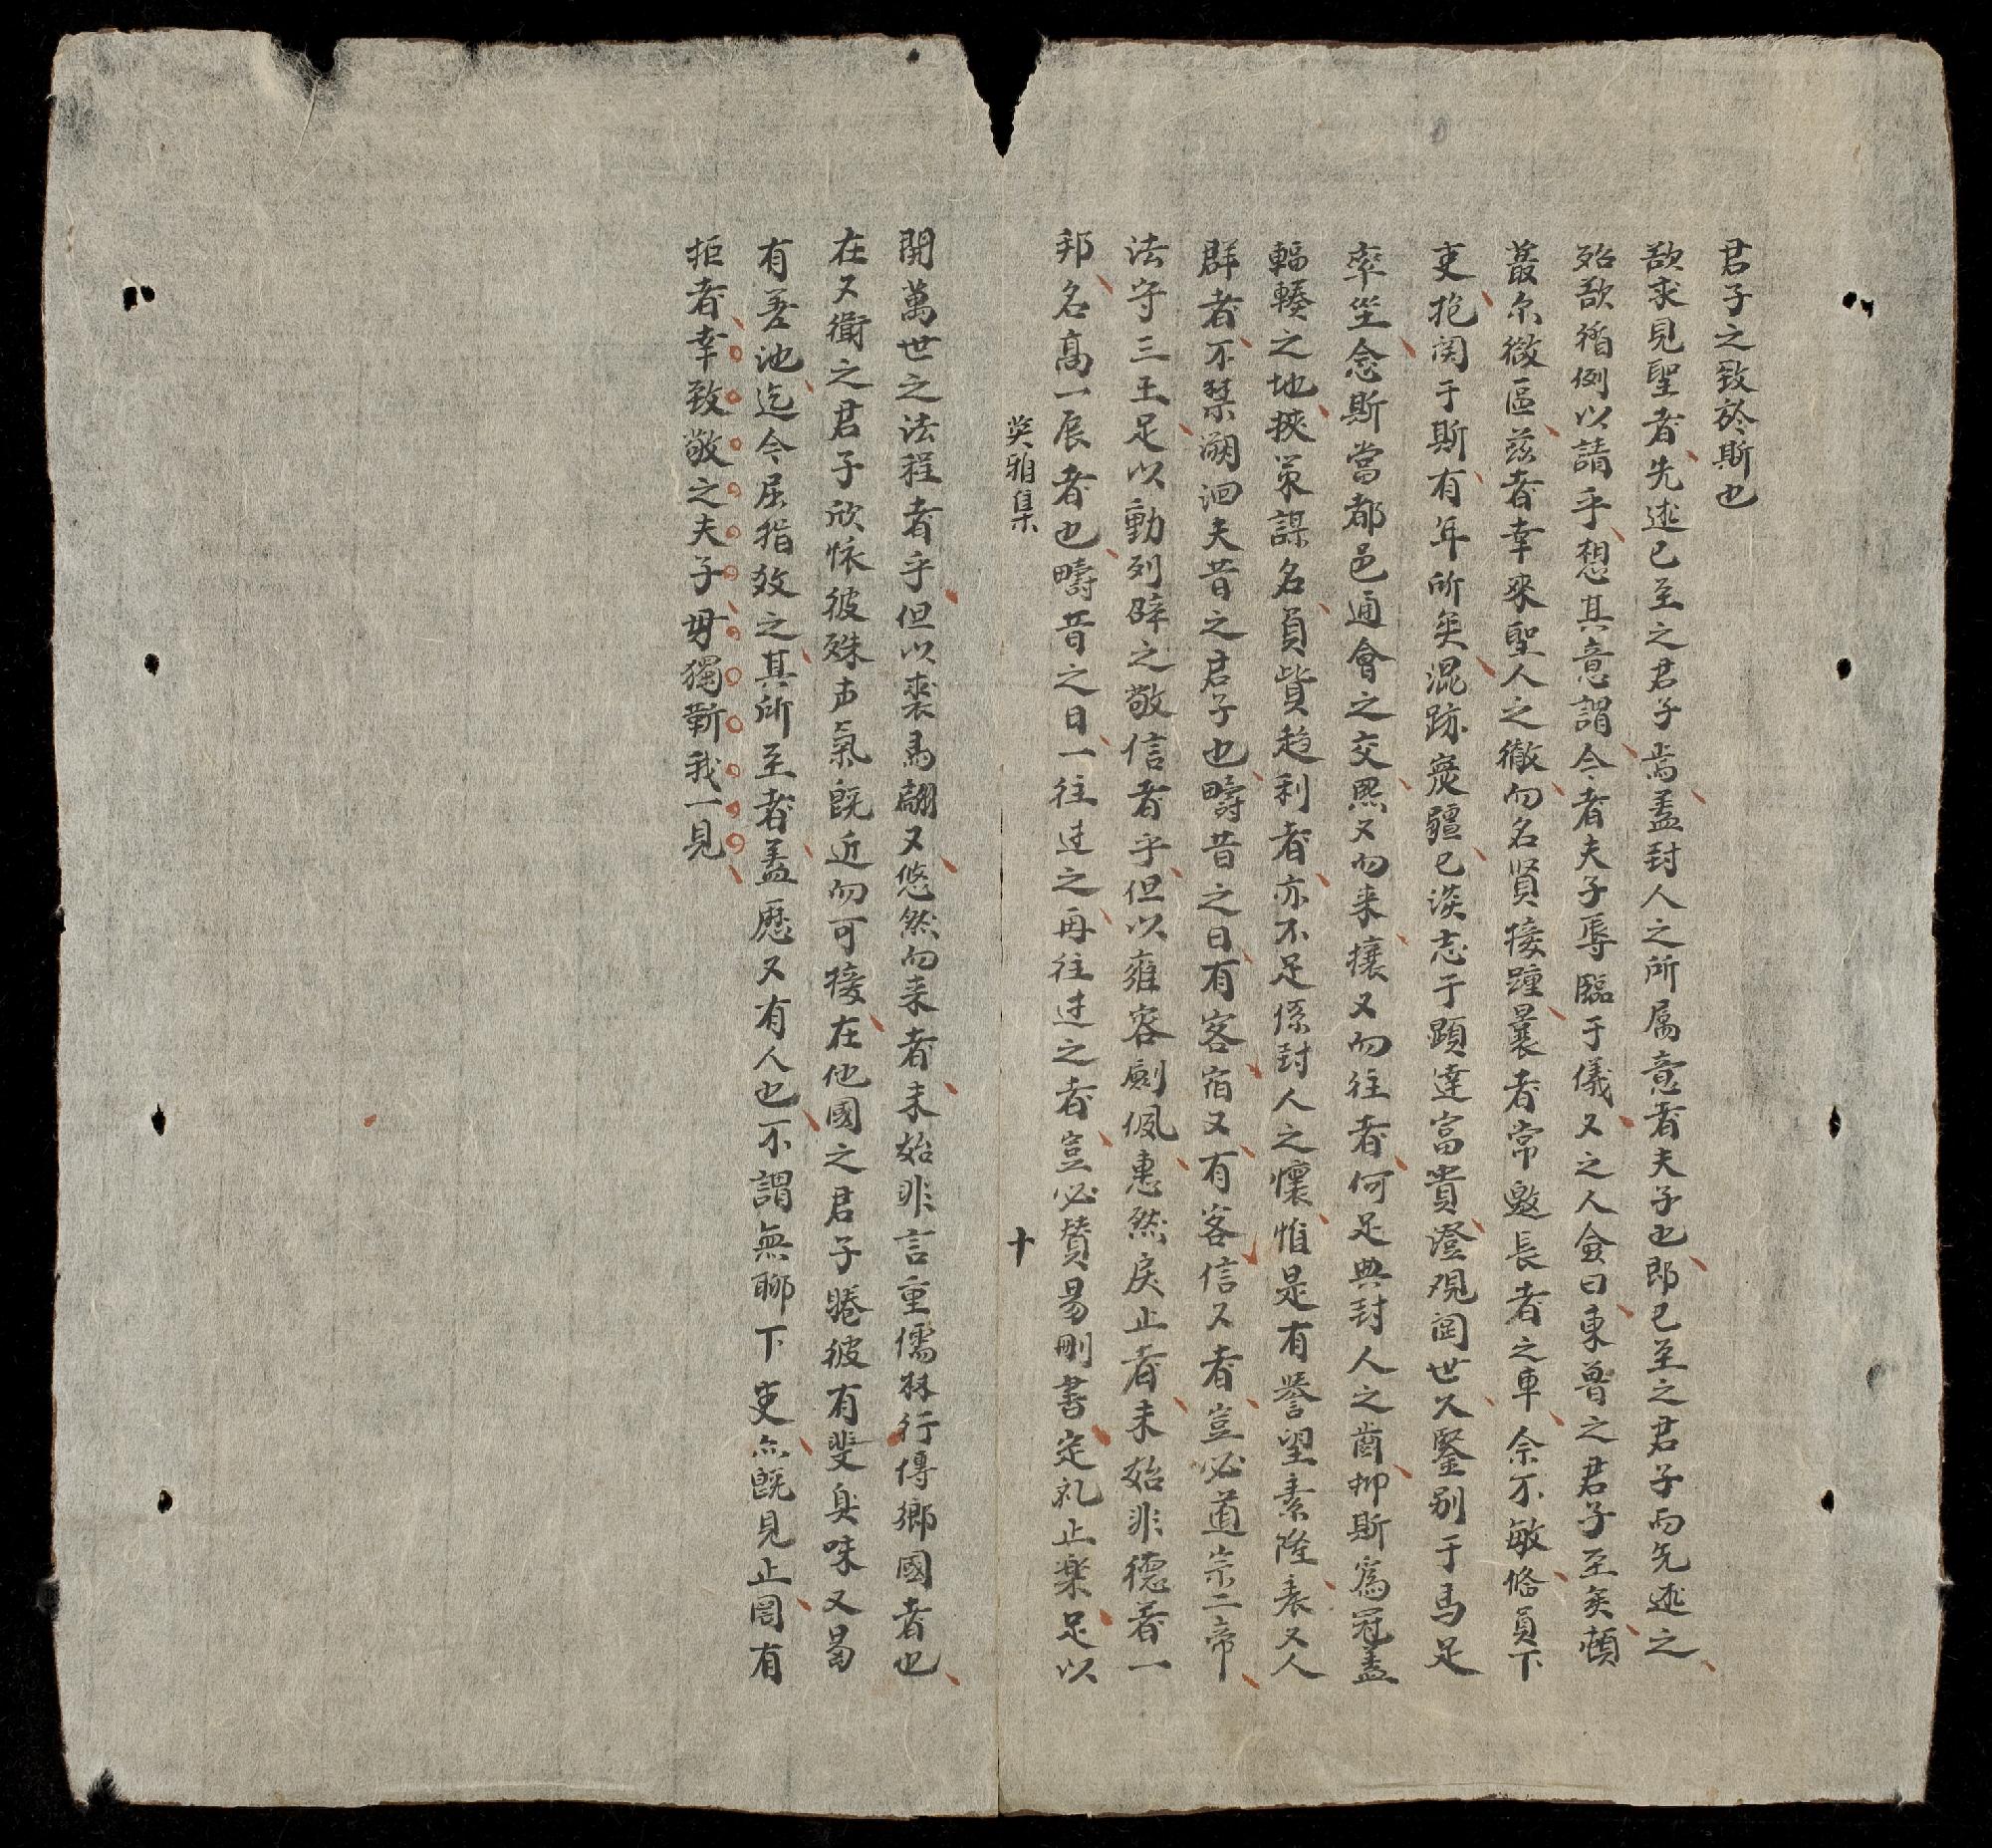 君子之致於斯也
欲求見聖者先述已至之君子焉蓋封人之所属意者夫子也即已至之君子而先述之
殆欲循例以請乎想其意謂今者夫子辱臨于儀又之人僉曰東魯之君子至矣頓
蕞尔微區兹者幸來聖人之轍向名賢接踵曩者常邀長者之車余不敏俻員下
吏抱関于斯有年所矣混跡炎疆已淡志于顕達富貴澄观閲世久鑒别于馬足
率坐念斯當都邑逋會之交熙又向来攘又向往者何足與封人之齒抑斯爲冠盖
輻輳之地挾策謀名負貲趋利者亦不足係封人之懷惟是有誉望素隆表又人
群者不禁溯洄夫昔之君子也疇昔之日有客宿又有客信又者豈必道宗二帝
法守三王足以動列辟之敬信者乎但以雍容劍佩惠然戾止者未始非德着一
邦名高一辰者也疇昔之日一往过之再往过之者豈必賛易刪書定礼止楽足以
英雅集
十
開萬世之法程者乎但以裘馬翩又悠然向来者未始非言重儒林行傳鄉國者也
在又衛之君子欣怺彼殊声氣既近向可接在他國之君子睠彼有斐臭味又曷
有差池迄今屈指效之其所至者盖歷又有人也不謂無聊下吏亦既見止罔有
拒者幸致敬之夫子毋獨靳我一見